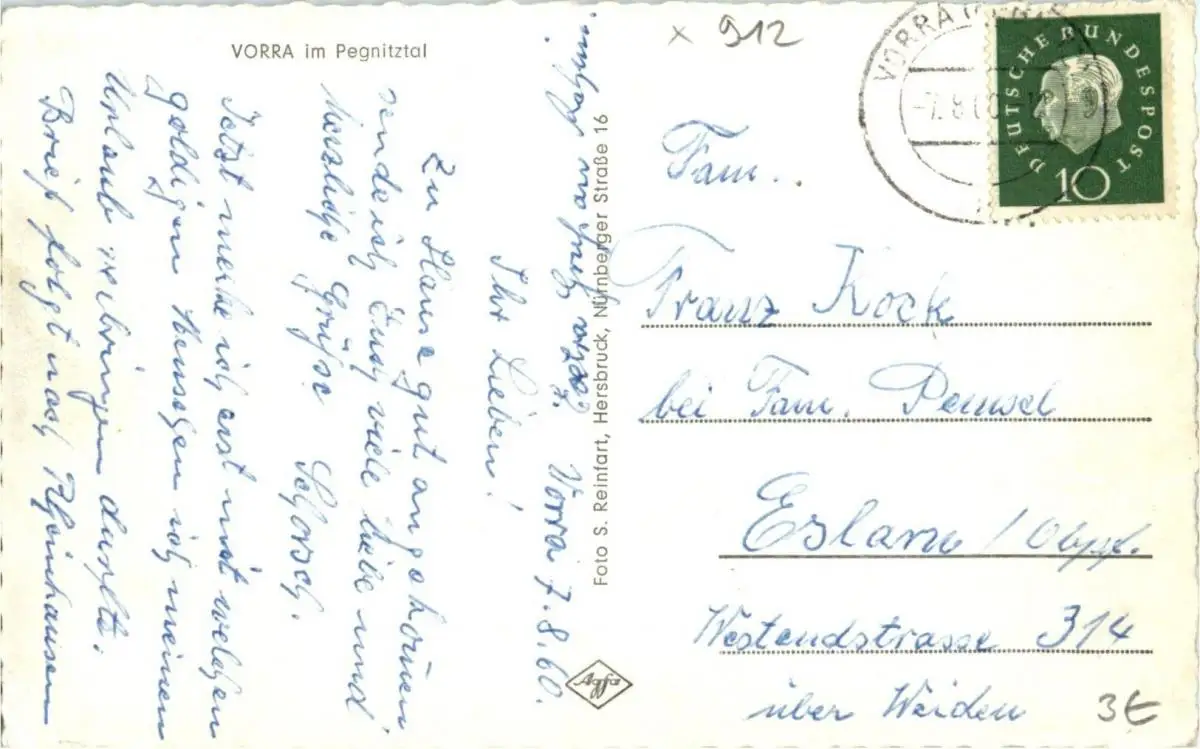 VORRA im Pegnitztal
Vorra 7.8.60.
Ihr Lieben!
Zu Hause gut angekommen
sende ich Euch viele liebe und
herzliche Grüße Schorsch.
Jetzt merke ich erst mit welchen
goldigen Menschen ich meinen
Urlaub verbringen durfte.
Brief folgt nach Rheinhausen
Foto S. Reinfart, Hersbruck, Nürnberger Straße 16
Agfa
x 912
VORRA
DEUTSCHE BUNDESPOST
10
Fam.
Franz Kock
bei Fam. Pemsel
Eslarn / Obpf.
Westendstrasse 314
über Weiden
3€